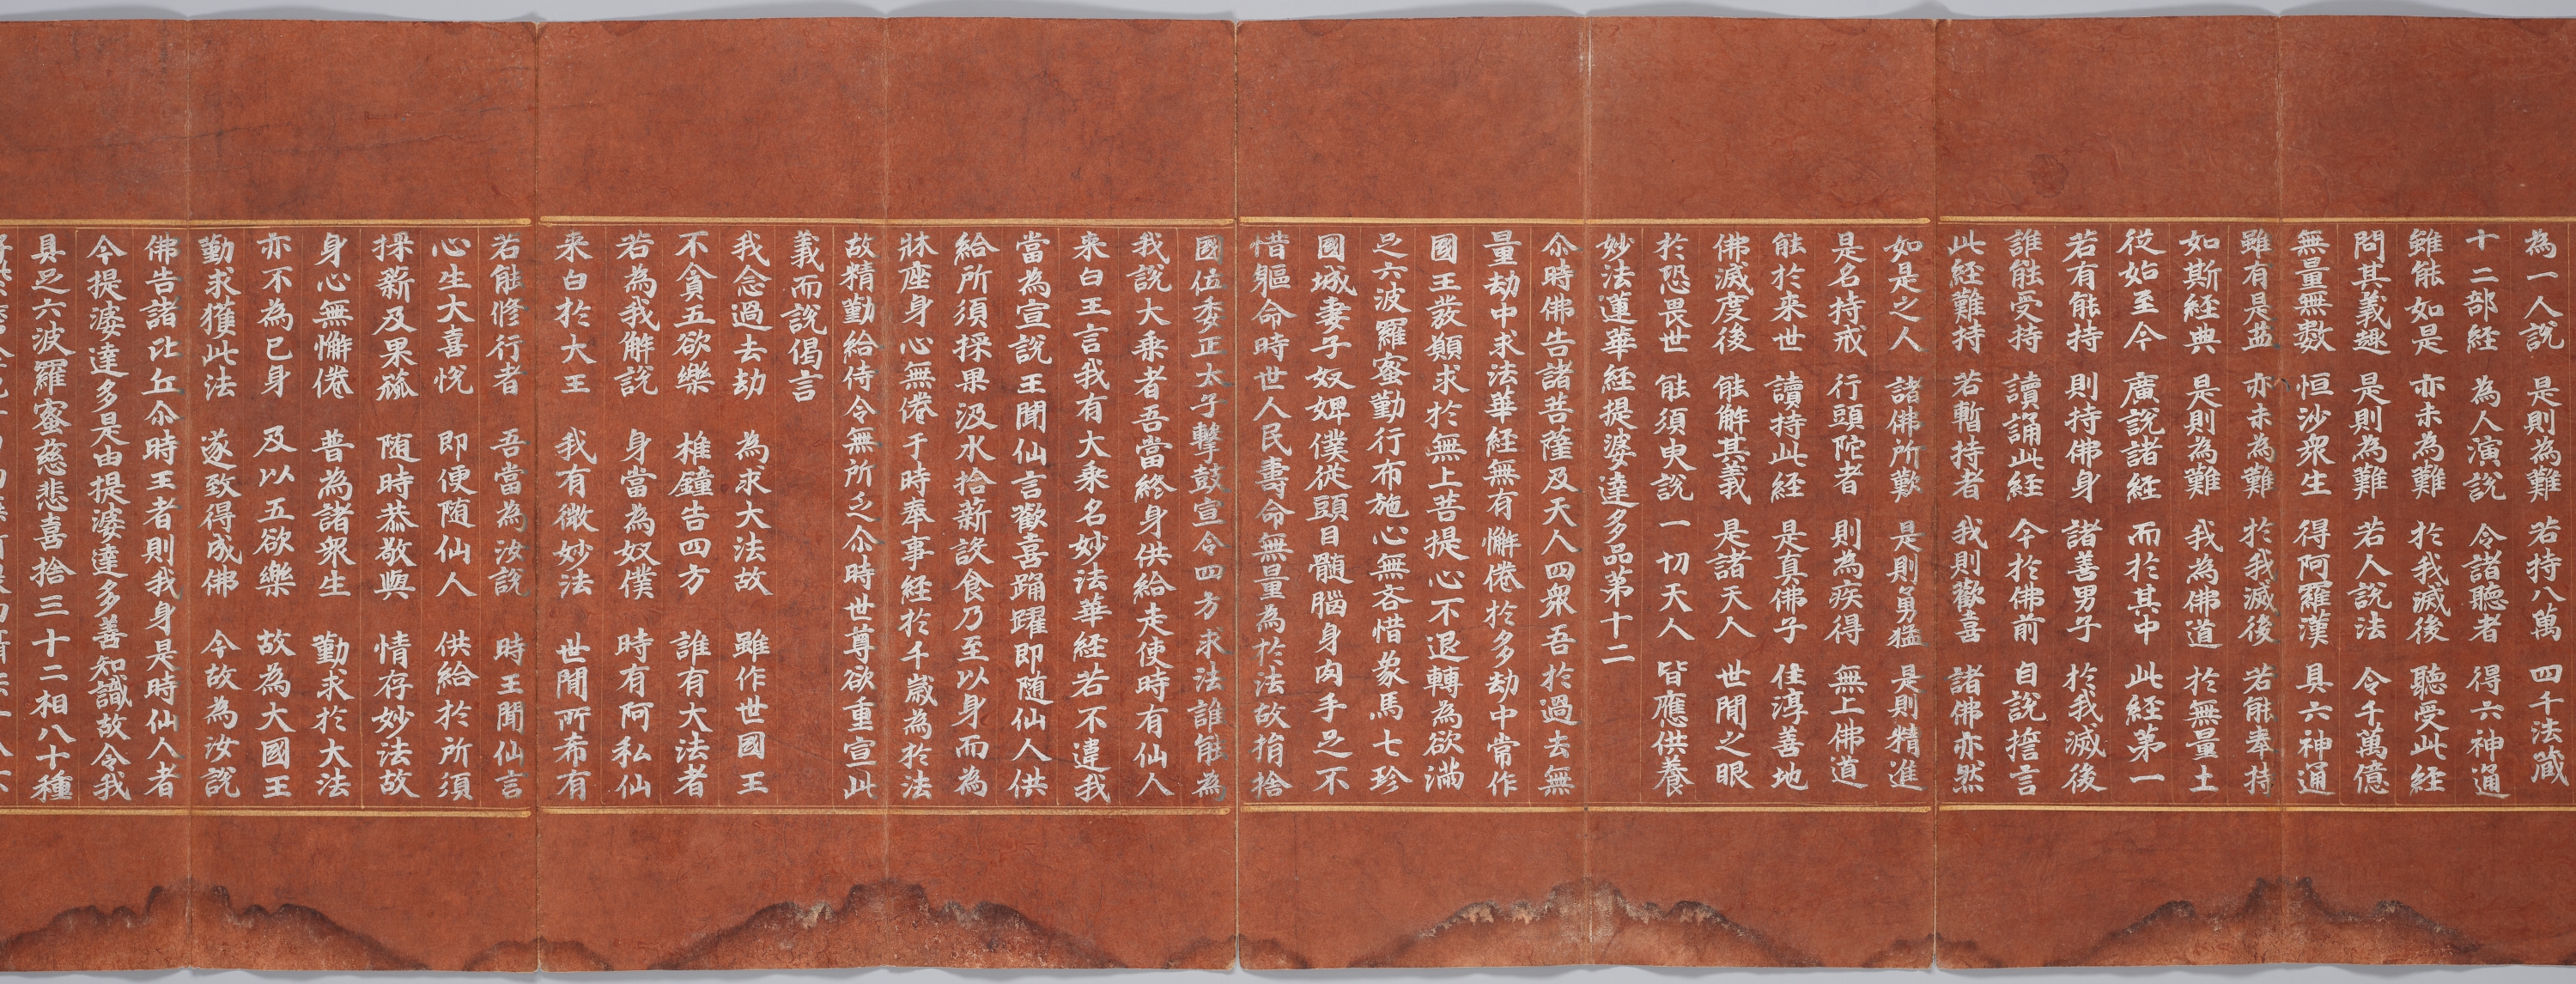 為一人說 是則為難 若持八萬 四千法藏
十二部經 為人演說 令諸聽者 得六神通
雖能如是 亦未為難 於我滅後 聽受此經
問其義趣 是則為難 若人說法 令千萬億
無量無數 恒沙衆生 得阿羅漢 具六神通
雖有是益 亦未為難 於我滅後 若能奉持
如斯經典 是則為難 我為佛道 於無量土
從始至今 廣說諸經 而於其中 此經第一
若有能持 則持佛身 諸善男子 於我滅後
誰能受持 讀誦此經 今於佛前 自說誓言
此經難持 若暫持者 我則歡喜 諸佛亦然
如是之人 諸佛所歎 是則勇猛 是則精進
是名持戒 行頭陀者 則為疾得 無上佛道
能於来世 讀持此經 是真佛子 住淳善地
佛滅度後 能解其義 是諸天人 世間之眼
於恐畏世 能須臾說 一切天人 皆應供養
妙法蓮華經提婆達多品第十二
尒時佛告諸菩薩及天人四衆吾於過去無
量劫中求法華經無有懈倦於多劫中常作
國王發願求於無上菩提心不退轉為欲滿
足六波羅蜜勤行布施心無吝惜象馬七珍
國城妻子奴婢僕從頭目髓腦身肉手足不
惜軀命時世人民壽命無量為於法故捐捨
國位委正太子擊鼓宣令四方求法誰能為
我說大乘者吾當終身供給走使時有仙人
来白王言我有大乘名妙法華經若不違我
當為宣說王聞仙言歡喜踊躍即随仙人供
給所須採果汲水拾薪設食乃至以身而為
牀座身心無倦于時奉事經於千歲為於法
故精勤給侍令無所乏尒時世尊欲重宣此
義而說偈言
我念過去劫 為求大法故 雖作世國王
不貪五欲樂 椎鐘告四方 誰有大法者
若為我解說 身當為奴僕 時有阿私仙
来白於大王 我有微妙法 世間所希有
若能修行者 吾當為汝說 時王聞仙言
心生大喜悅 即便随仙人 供給於所須
採薪及果蓏 随時恭敬與 情存妙法故
身心無懈倦 普為諸衆生 勤求於大法
亦不為己身 及以五欲樂 故為大國王
勤求獲此法 遂致得成佛 今故為汝說
佛告諸比丘尒時王者則我身是時仙人者
今提婆達多是由提婆達多善知識故令我
具足六波羅蜜慈悲喜捨三十二相八十種